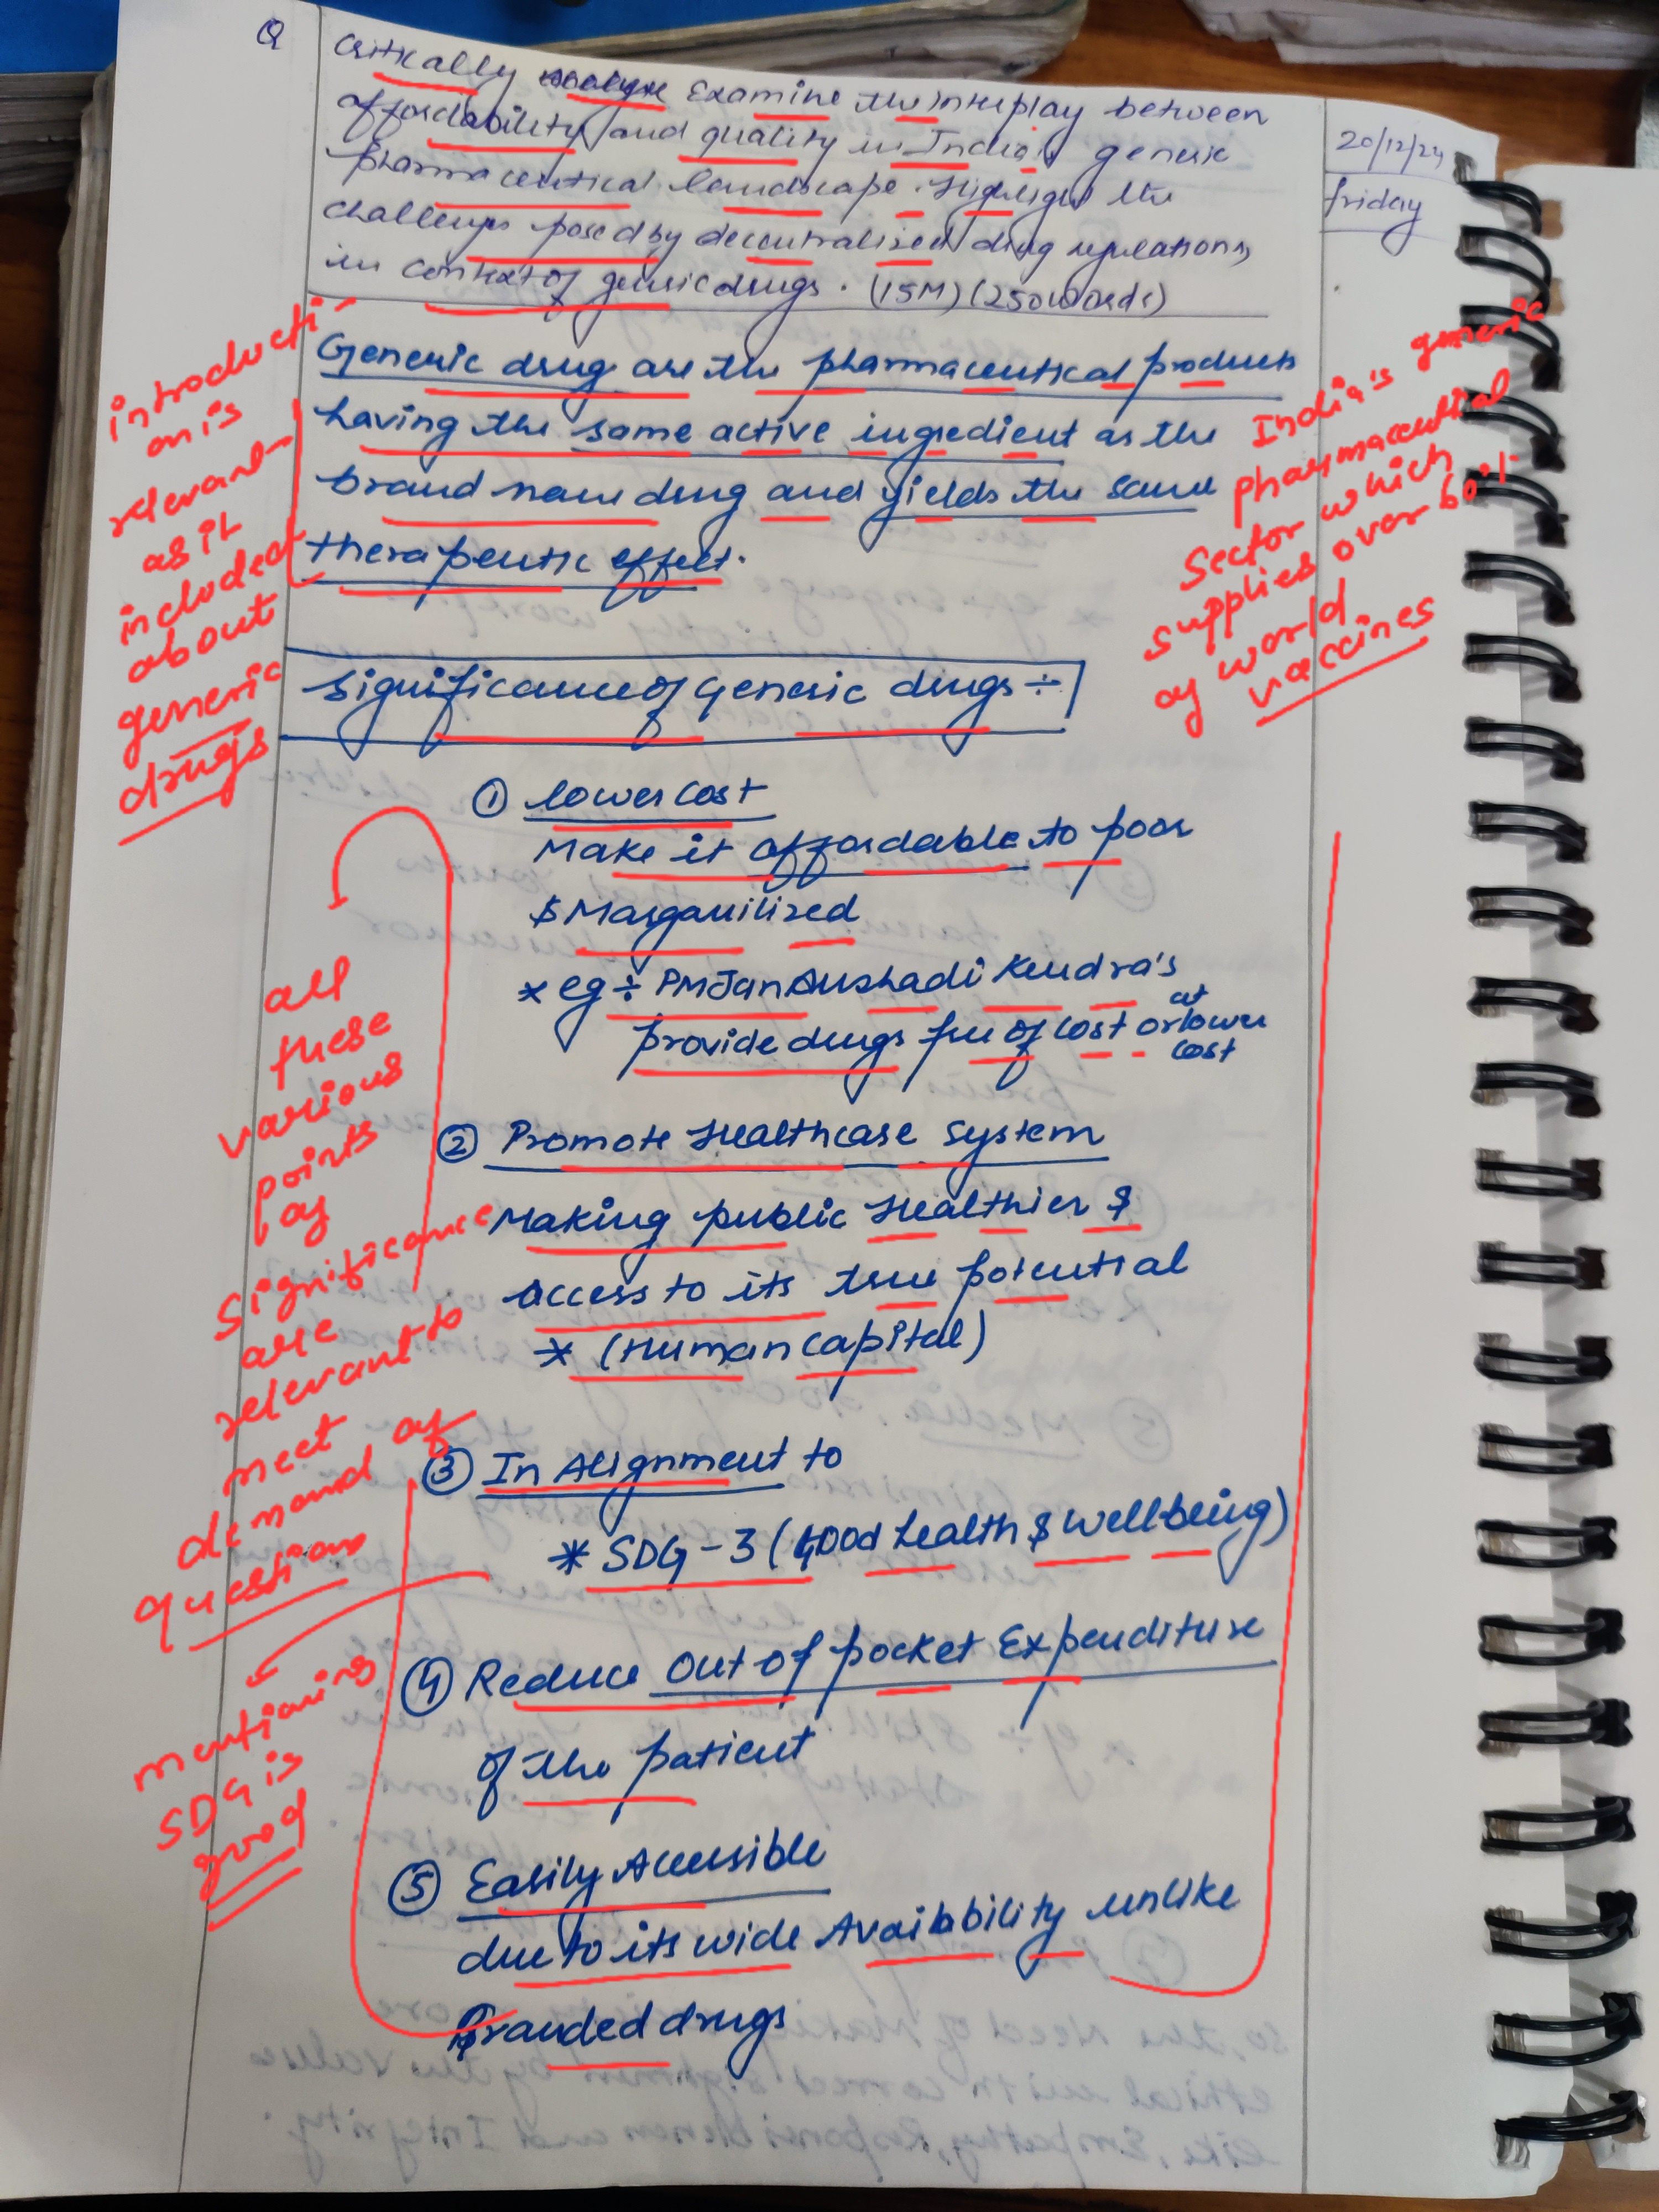 Q
Critically analyse Examine the interplay between
affordability and quality in India's generic
pharmaceutical landscape. Highlight the
challenges posed by decentralised drug regulations
in context of generic drugs. (15M) (250 words)
20/12/24
friday
Generic drug are the pharmaceutical products
having the same active ingredient as the
brand name drug and yields the same
therapeutic effect.
introducti-
on is
relevant
as it
included
about
generic
drugs
India's generic
pharmaceutical
Sector which
supplies over 60%
of world
vaccines
Significance of Generic drugs ÷
① lower cost
Make it affordable to poor
$ Marganilized
* eg ÷ PM Jan Aushadi Kendra's
provide drugs free of cost or at lower
cost
② Promote Healthcare System
Making public Healthier $
access to its true potential
* (Human Capital)
③ In Alignment to
* SDG-3 (Good health $ wellbeing)
④ Reduce Out of pocket Expenditure
of the patient
⑤ Easily Accessible
due to its wide Availability unlike
Branded drugs
all
these
various
points
of
significance
are
relevant to
meet
demand of
question
mentioning
SDG is
good